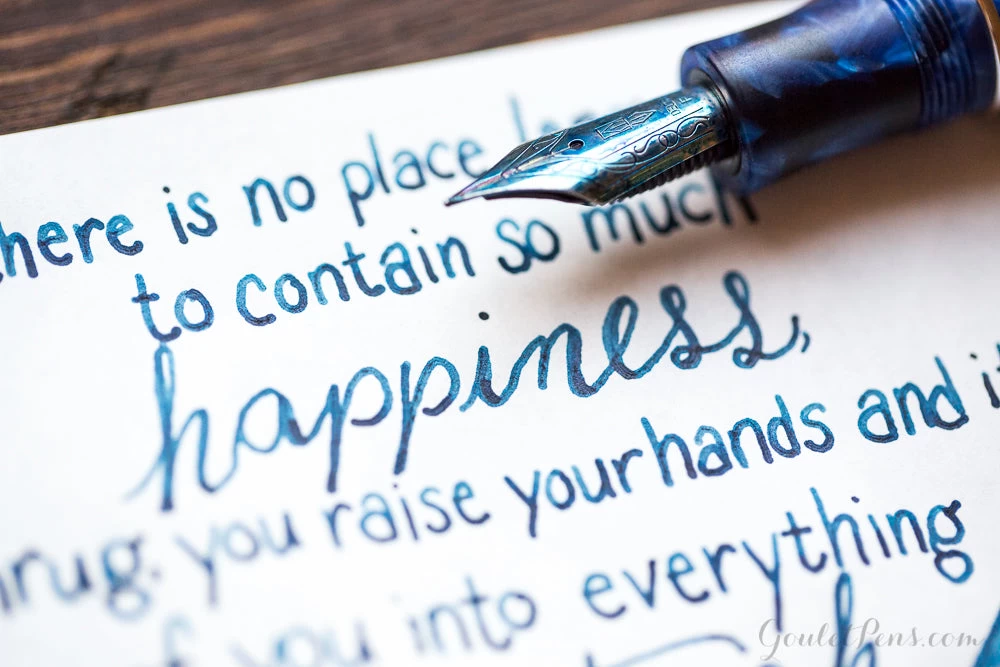 here is no place
to contain so much
happiness,
hrug, you raise your hands and it
you into everything
GouletPens.com